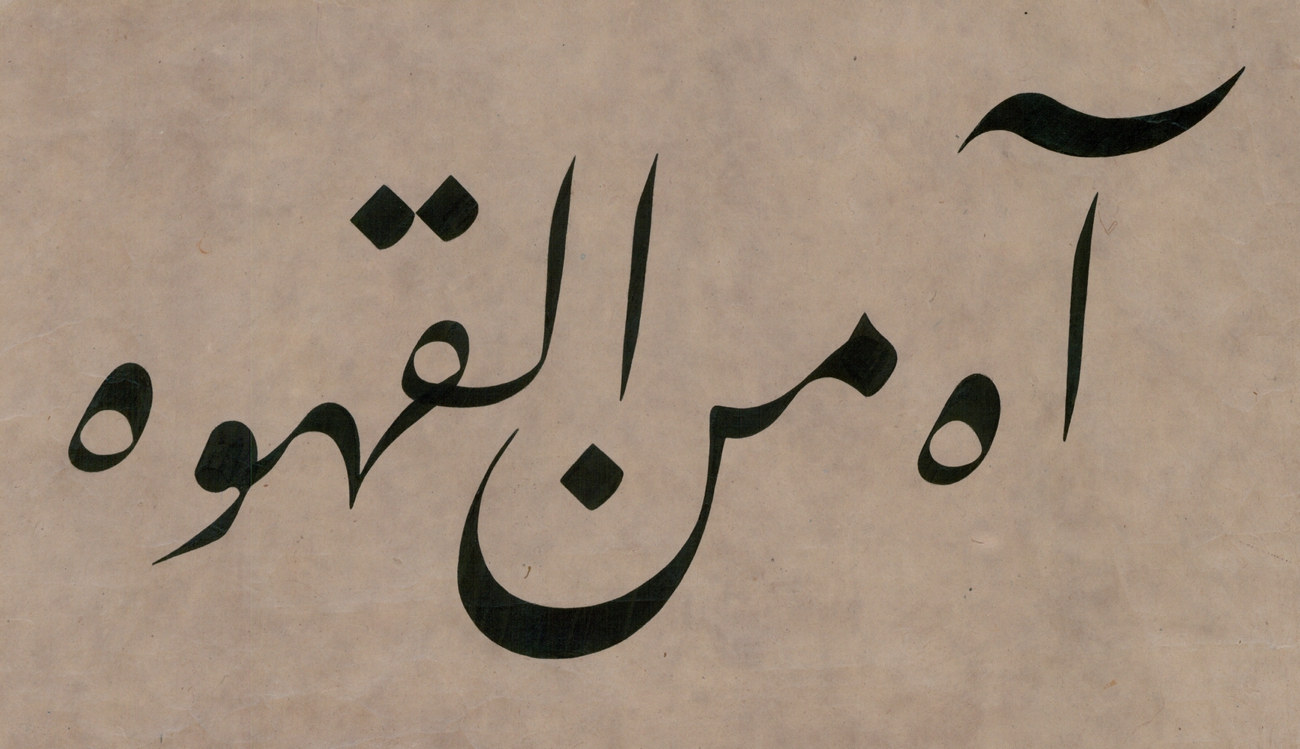 آه من القهوه